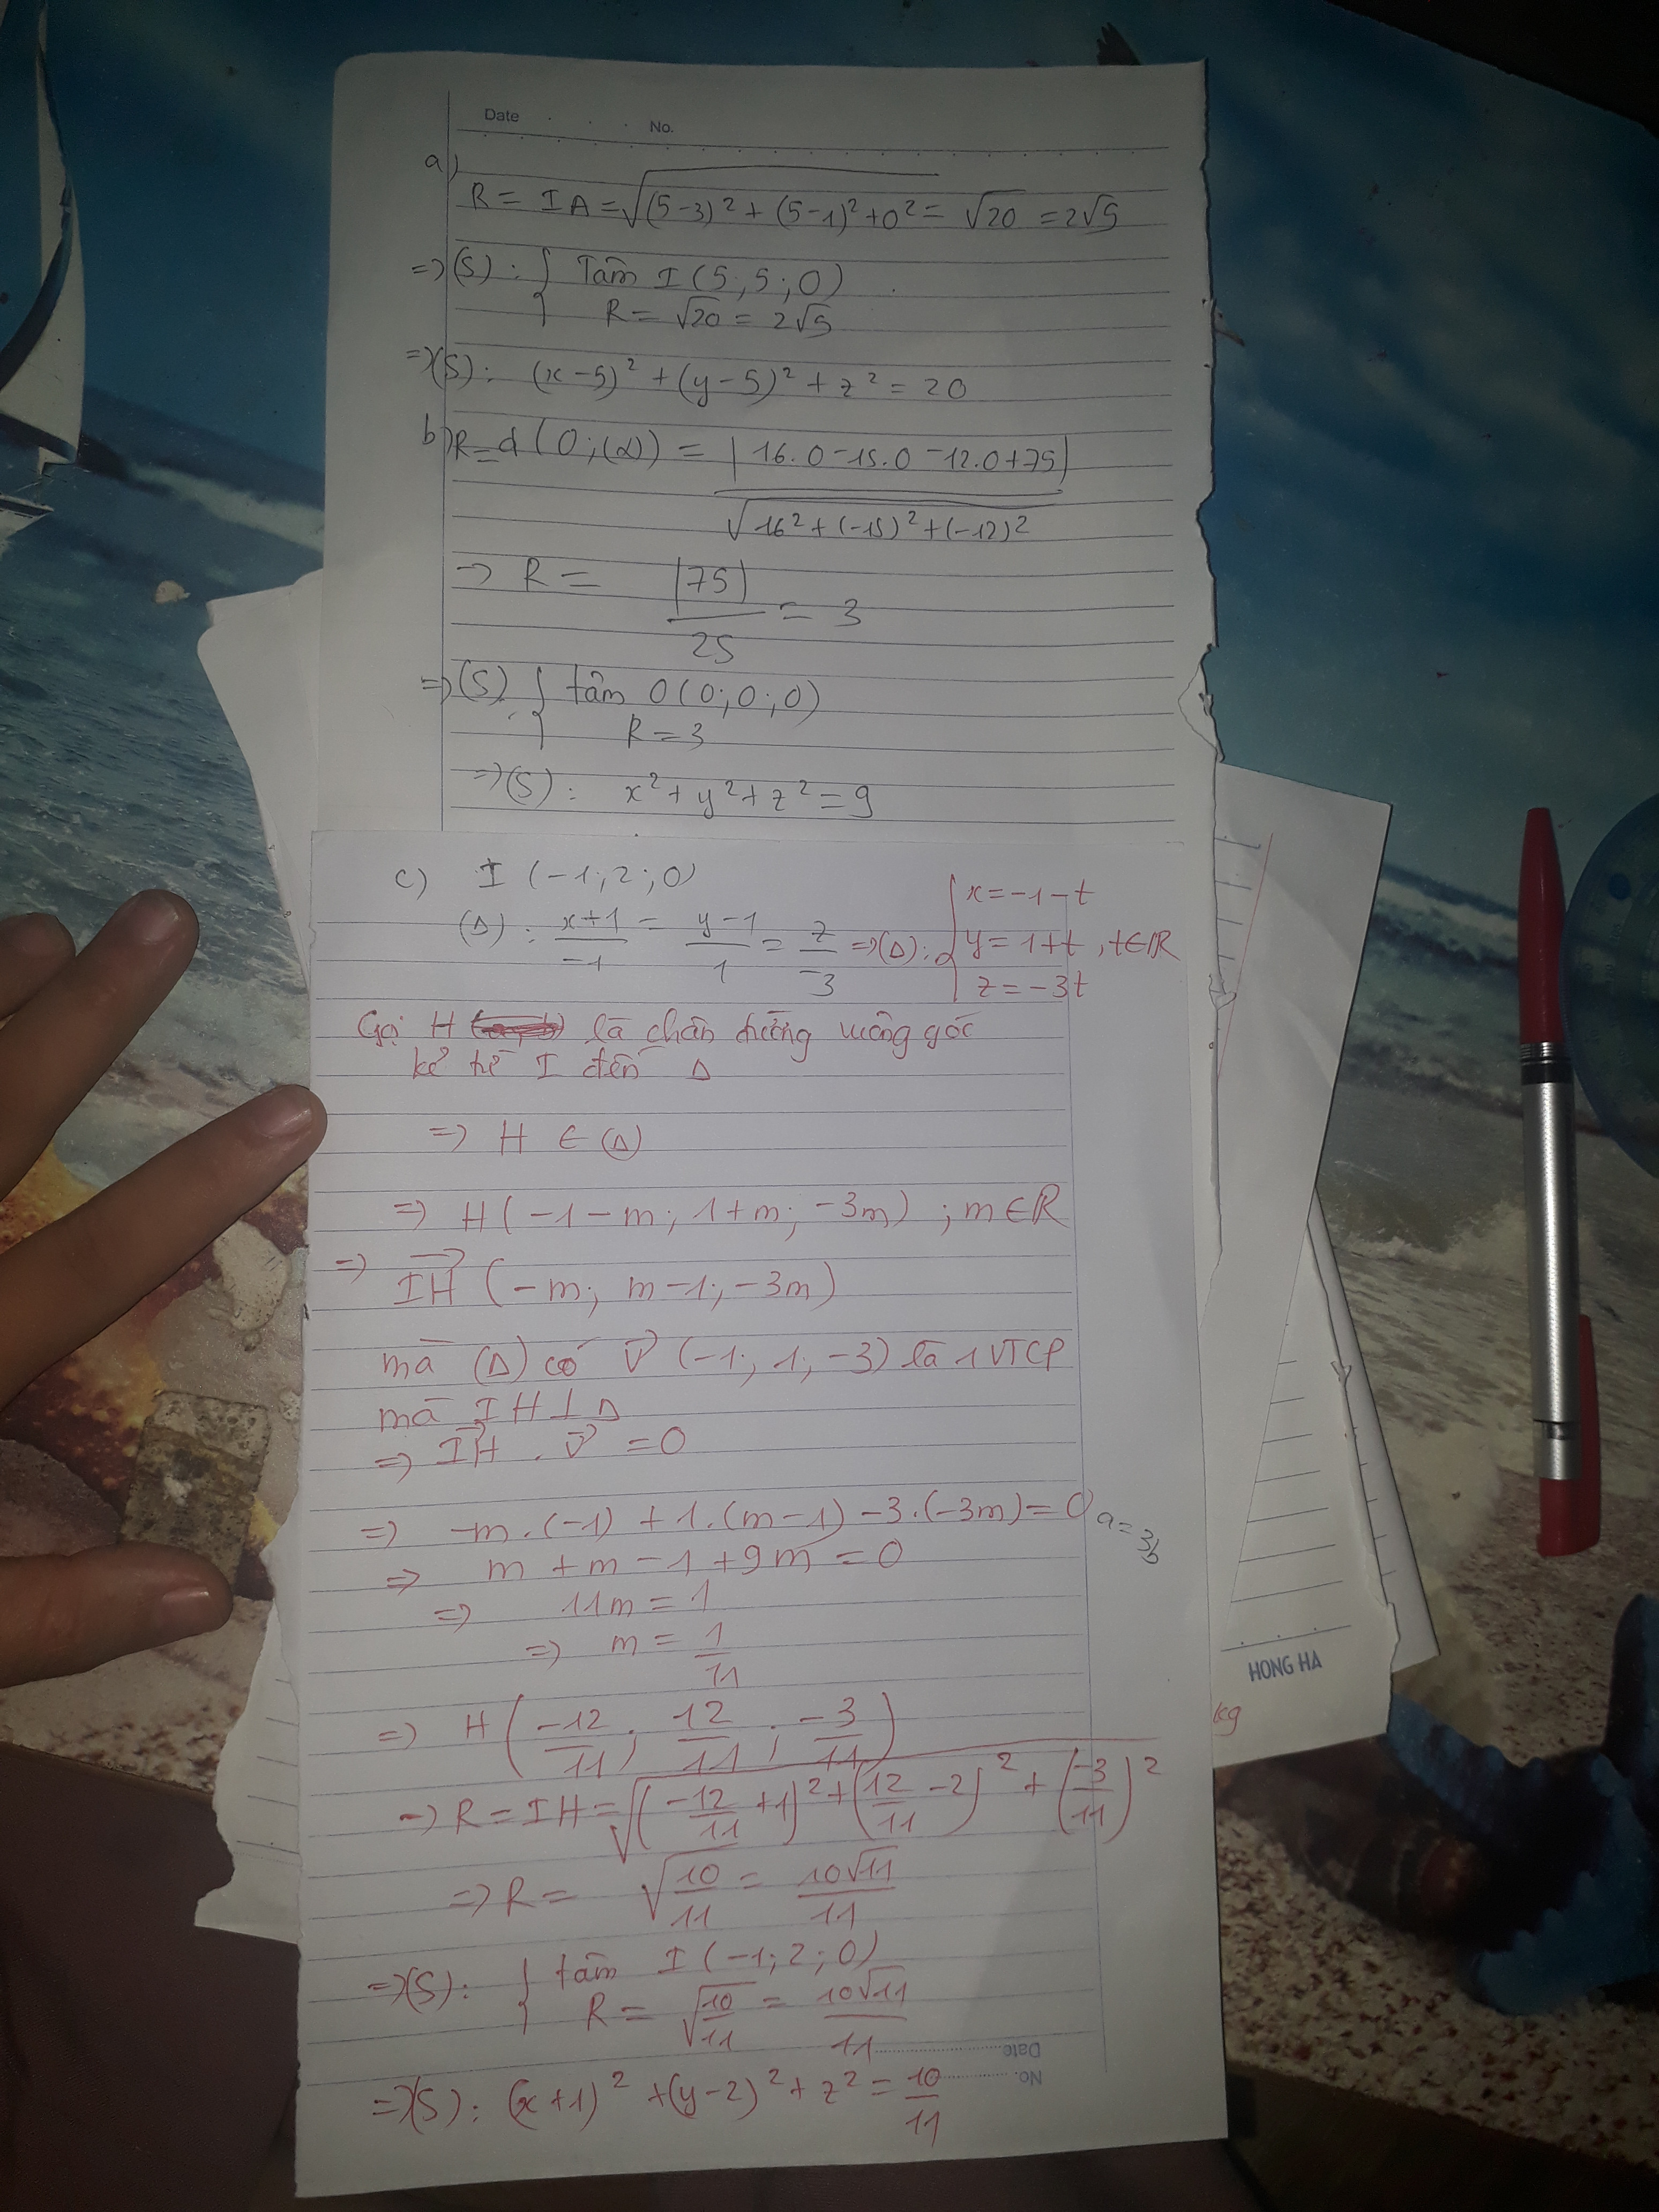 Date No.
a)
R = IA = √((5-3)² + (5-1)² + 0²) = √20 = 2√5
=> (S): { Tâm I (5; 5; 0)
R = √20 = 2√5
=> (S): (x-5)² + (y-5)² + z² = 20
b) R = d (O; (α)) = |16.0 - 15.0 - 12.0 + 75| / √(16² + (-15)² + (-12)²)
=> R = |75| / 25 = 3
=> (S): { tâm O (0; 0; 0)
R = 3
=> (S): x² + y² + z² = 9
c) I (-1; 2; 0)
(Δ): (x+1)/(-1) = (y-1)/1 = z/(-3) => (Δ): { x = -1 - t
y = 1 + t , t ∈ R
z = -3t
Gọi H là chân đường vuông góc
kẻ từ I đến Δ
=> H ∈ (Δ)
=> H (-1-m; 1+m; -3m) ; m ∈ R
=> IH→ (-m; m-1; -3m)
mà (Δ) có v→ (-1; 1; -3) là 1 VTCP
mà IH ⊥ Δ
=> IH→ . v→ = 0
=> -m.(-1) + 1.(m-1) - 3.(-3m) = 0
=> m + m - 1 + 9m = 0
=> 11m = 1
=> m = 1/11
=> H (-12/11; 12/11; -3/11)
=> R = IH = √((-12/11 + 1)² + (12/11 - 2)² + (-3/11)²)
=> R = √(10/11) = 10√11/11
=> (S): { tâm I (-1; 2; 0)
R = √(10/11) = 10√11/11
=> (S): (x+1)² + (y-2)² + z² = 10/11
Date
No.
HONG HA
kg